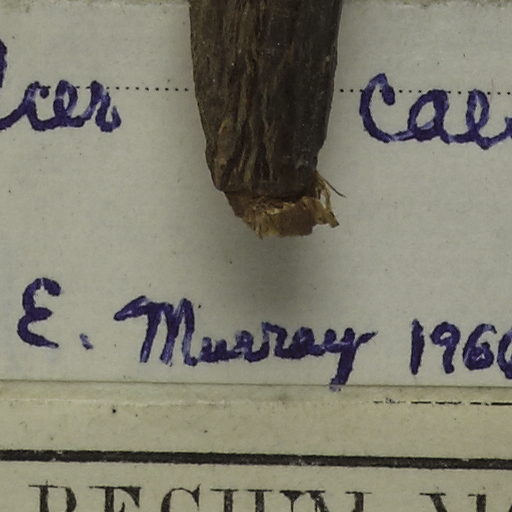 Acer cae
E. Murray 1966
REGIUM MO